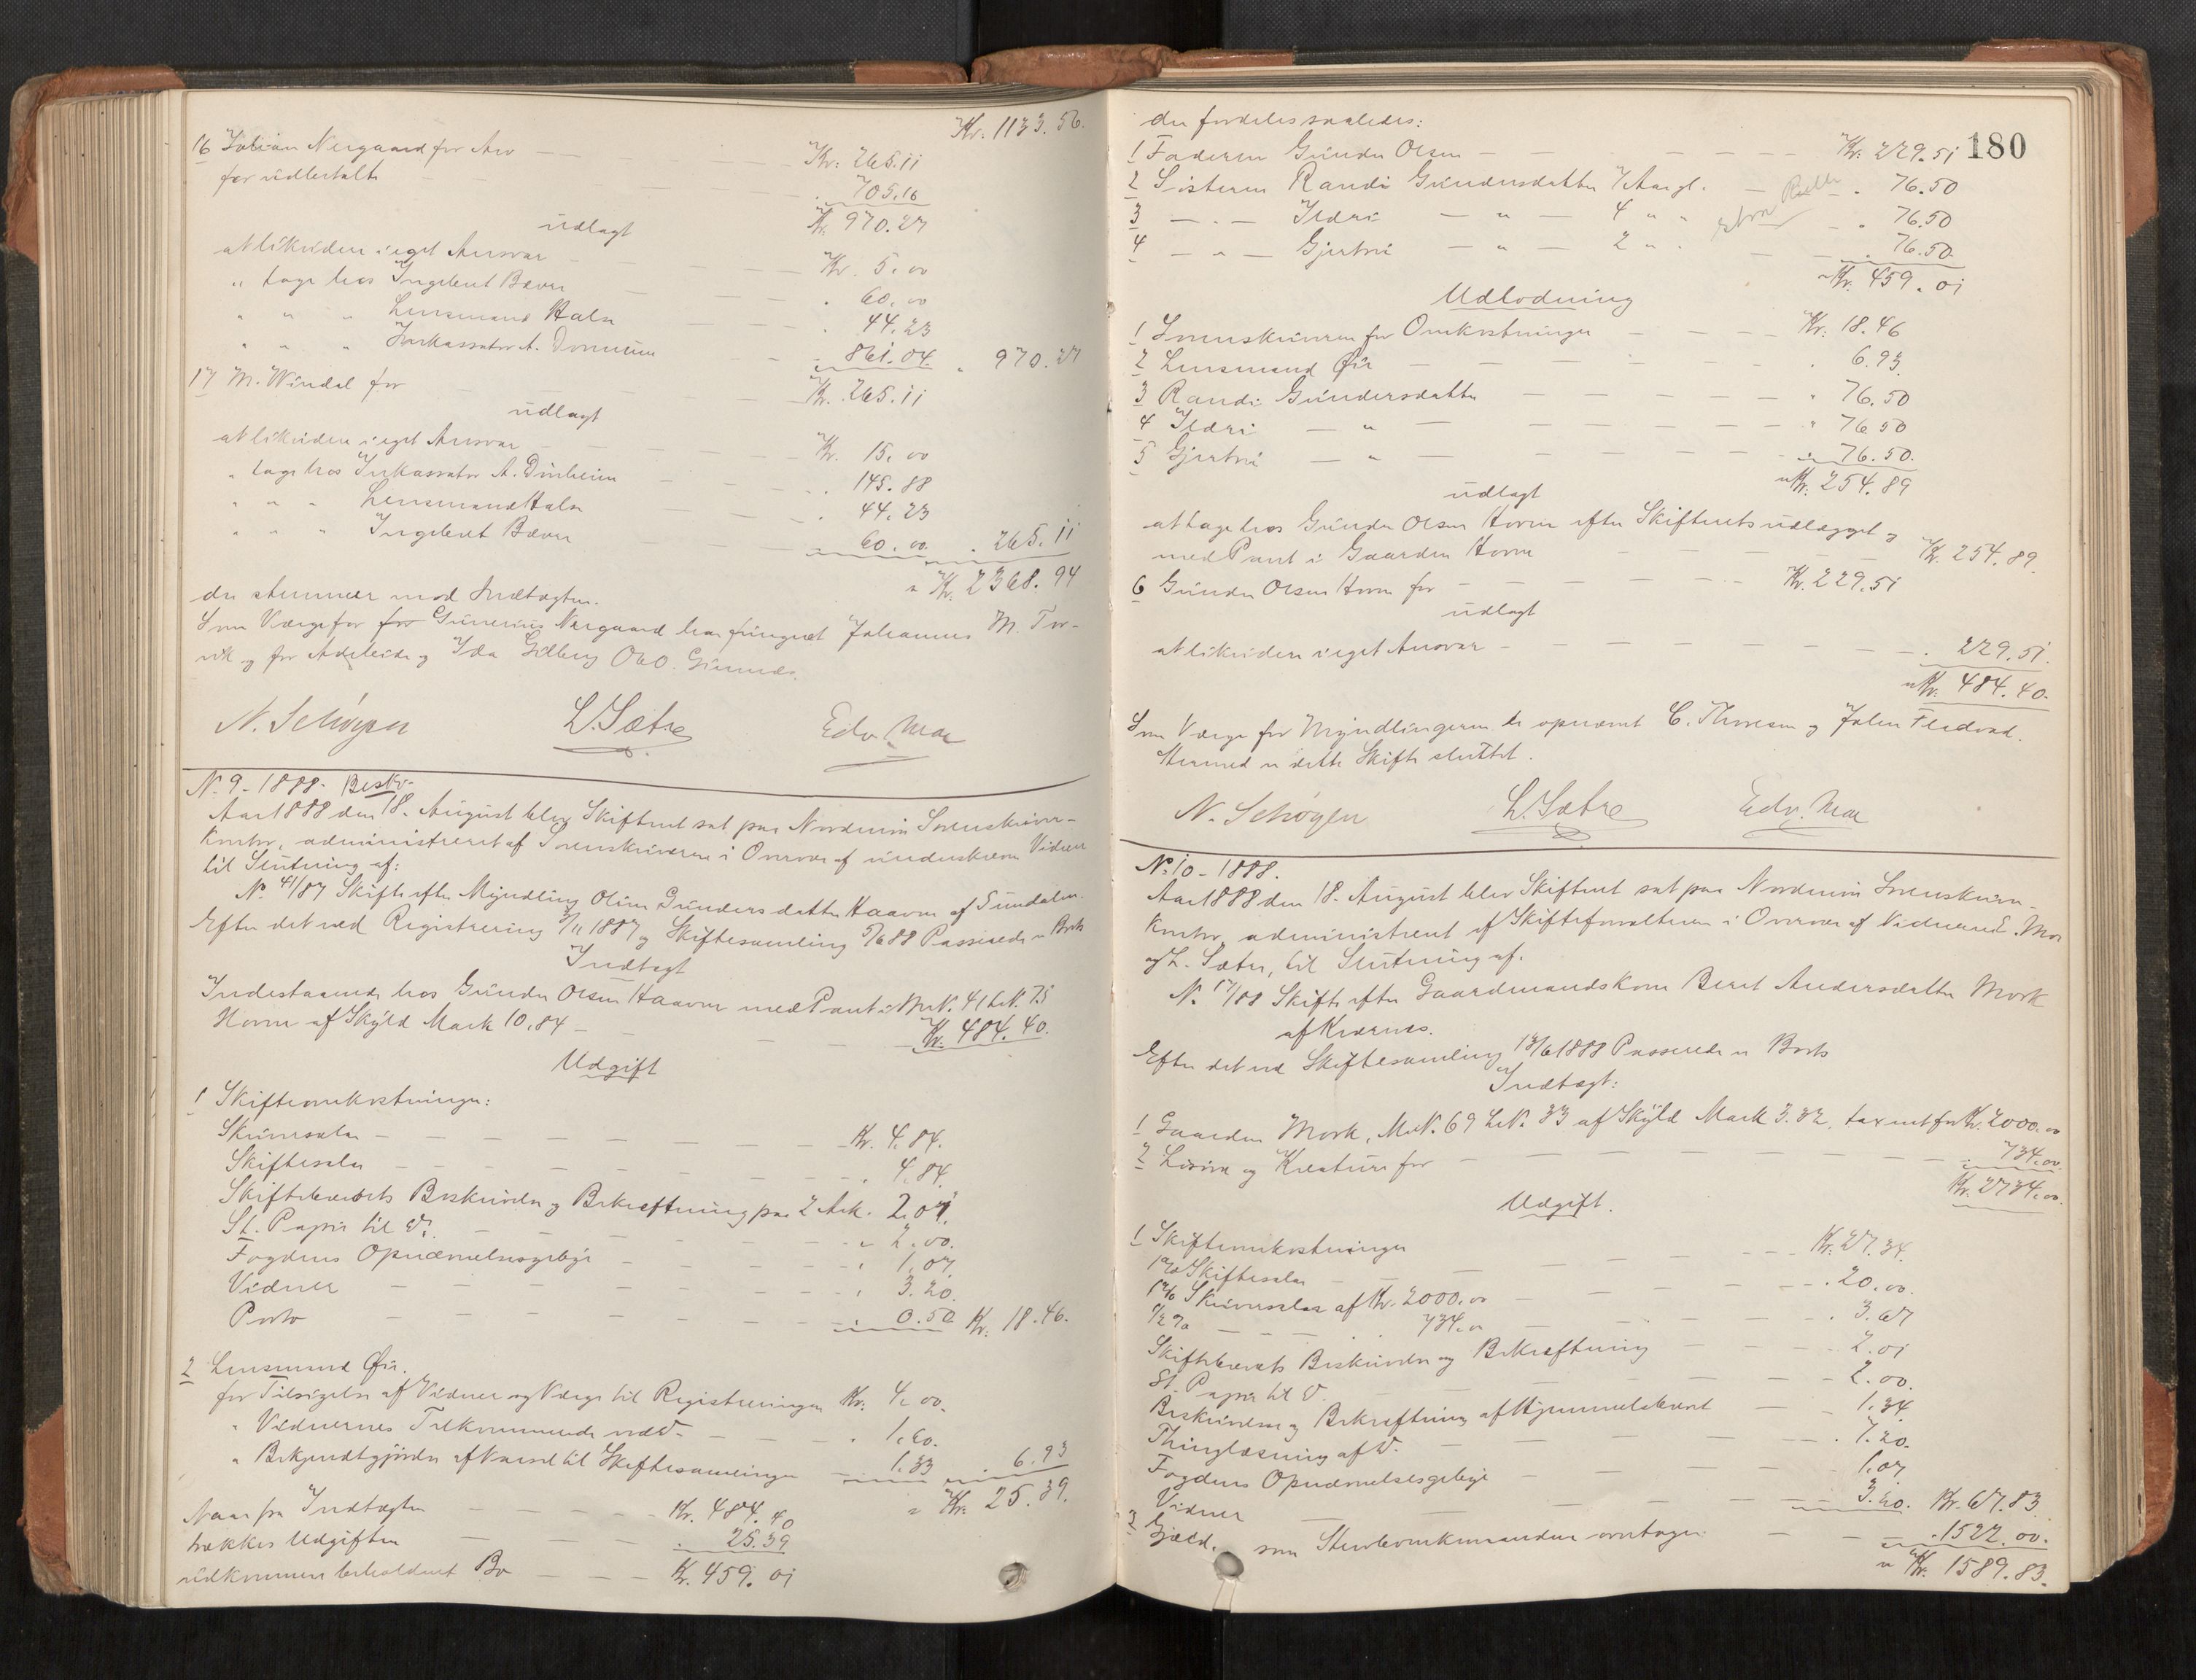 Kr. 1133.56.
16 Julian Nergaard for Arv — Kr. 265.11
for udbetalt — 705.16
Kr. 970.27
udlagt
at likvidere i eget Ansvar — Kr. 5.00
" tage hos Ingebret Bæver — 60.00
" " " Lensmand Halse — 44.23
" " " Inkassator A. Dønheim — 861.04. 970.27
17 M. Windal for — Kr. 265.11
udlagt
at likvidere i eget Ansvar — Kr. 15.00
" tage hos Inkassator A. Dønheim — 145.88
" " " Lensmand Halse — 44.23
" " " Ingebret Bæver — 60.00. 265.11
Kr. 2368.94
der stemmer med Indtægten.
Som Værge for for Gunerius Nergaard har fungeret Johannes M. Tor-
vik og for Adeleide og Ida Gilberg O & O.
N. Schøyen L. Sætre Edv. Moe
No. 9 - 1888. Beskr.
Aar 1888 den 18. August blev Skifteret sat paa Nordmør Sorenskriver-
kontor, administreret af Sorenskriveren i Overvær af underskrevne Vidner
til Slutning af:
No. 41/87 Skifte efter Myndling Oline Gundersdatter Haavne af Sundalen.
Efter det ved Registrering 3/11 1887 og Skiftesamling 5/6 88 Passerede er Boets
Indtægt
Indestaaende hos Gunder Olsen Haavne med Pant i M.N. 41 L.N. 75
Hovne af Skyld Mark 10.84 — Kr. 484.40.
Udgift
1 Skifteomkostninger:
Skriversalær — Kr. 4.84.
Skiftesalær — 4.84.
Skiftebrevets Beskrivelse og Bekræftning paa 2 Ark. 2.01.
St. Papir til do. — 2.00.
Fogdens Opnævnelsesgebyr — 1.07
Vidner — 3.20.
Porto — 0.50 Kr. 18.46.
2 Lensmand Øie.
for Tilsigelse af Vidner og Værge til Registreringen Kr. 4.00.
" Vidnernes Tilkommende ved do. — 1.60.
" Bekjendtgjørelse af Varsel til Skiftesamlingen — 1.33 6.93
Kr. 25.39.
Naar fra Indtægten — Kr. 484.40
trækkes Udgiften — 25.39
udkommer beholdent Bo — Kr. 459.01
180
der fordeles saaledes:
1 Faderen Gunder Olsen — Kr. 229.51
2 Søsteren Randi Gundersdatter 7 Aar gl. — 76.50
3 — " — Ildri — " — 4 " " — 76.50
4 — " — Gjertrui — " — 2 " " — 76.50
Kr. 459.01
Udlodning
1 Sorenskriveren for Omkostninger — Kr. 18.46
2 Lensmand Øie — 6.93.
3 Randi Gundersdatter — 76.50
4 Ildri — " — 76.50
5 Gjertrui — " — 76.50.
Kr. 254.89
udlagt
at tage hos Gunder Olsen Hovne efter Skifterets udlægget og
med Pant i Gaarden Hovne — Kr. 254.89.
6 Gunder Olsen Hovne for — Kr. 229.51
udlagt
at likvidere i eget Ansvar — 229.51.
Kr. 484.40.
Som Værge for Myndlingerne er opnævnt C. Thoresen og John Fladvad.
Hermed er dette Skifte sluttet.
N. Schøyen L. Sætre Edv. Moe
No. 10 - 1888.
Aar 1888 den 18. August blev Skifteret sat paa Nordmør Sorenskriver-
kontor, administreret af Skifteforvalteren i Overvær af Vidnerne E. Moe
og L. Sætre, til Slutning af.
No. 17/88 Skifte efter Gaardmandskone Beret Andersdatter Mork
af Kværnes.
Efter det ved Skiftesamling 13/6 1888 Passerede er Boets
Indtægt:
1 Gaarden Mork, M.N. 69 L.N. 33 af Skyld Mark 3.32, taxeret for Kr. 2000.00
2 Løsøre og Kreaturer for — 734.00.
Kr. 2734.00.
Udgift.
1 Skifteomkostninger
1% Skiftesalær — Kr. 27.34.
1% Skriversalær af Kr. 2000.00 — 20.00.
1/2 % — 734.00 — 3.67
Skiftebrevets Beskrivelse og Bekræftning — 2.01
St. Papir til do. — 2.00.
Beskrivelse og Bekræftning af Hjemmelsbrevet — 1.34.
Thinglæsning af do. — 7.20.
Fogdens Opnævnelsesgebyr — 1.07.
Vidner — 3.20. Kr. 67.83
2 Gjæld, som Sterbomkemanden overtager — 1522.00.
Kr. 1589.83.